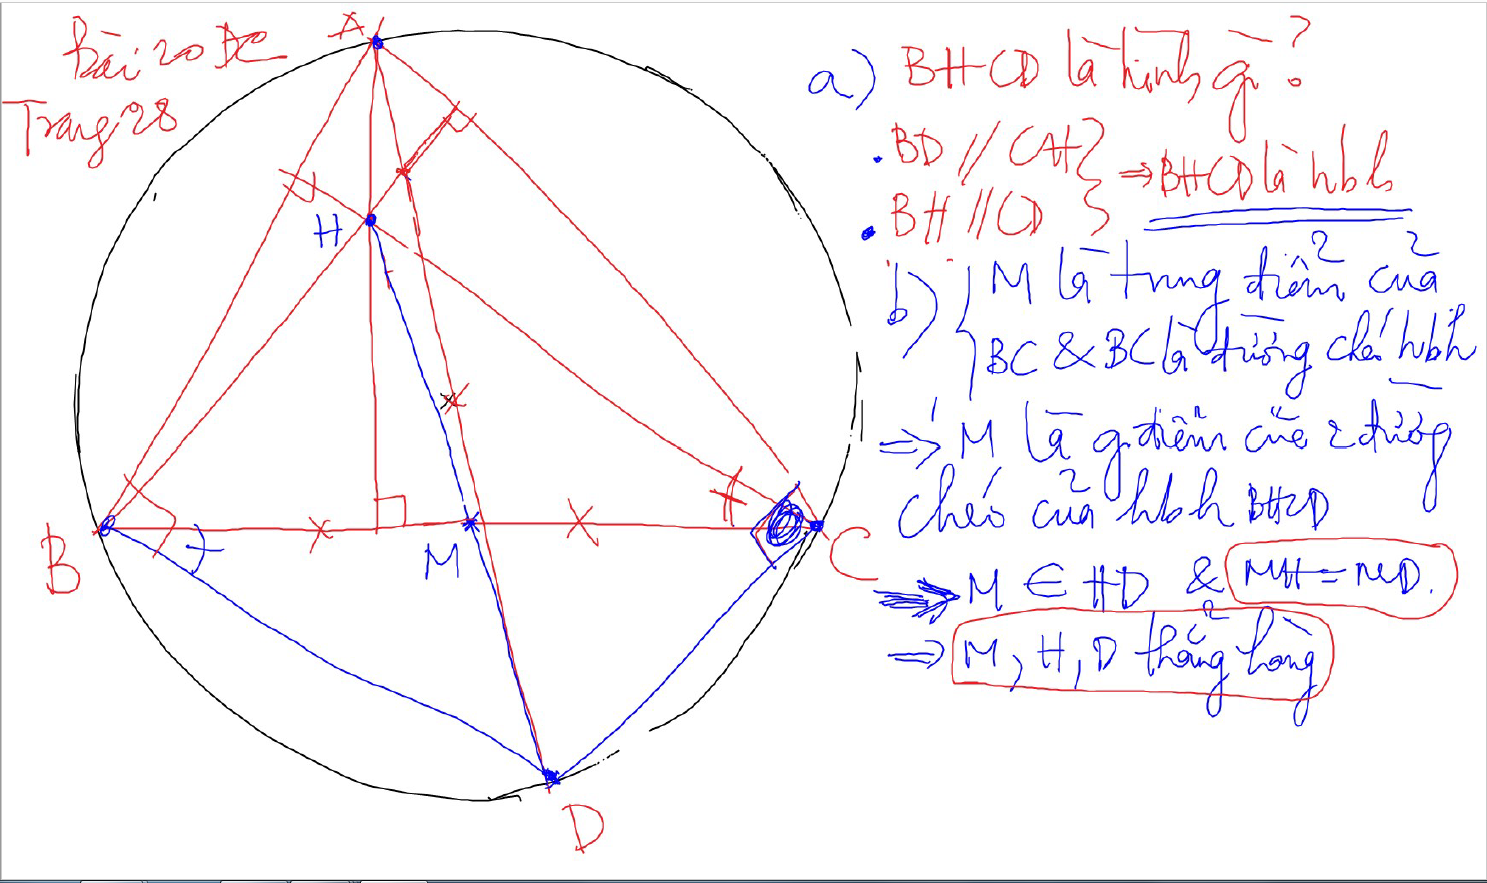 Bài 20 ĐC
Trang 28
A
H
B
M
C
D
a) BHCD là hình gì ?
• BD // CH } ⇒ BHCD là hbh
• BH // CD
b) { M là trung điểm của
BC & BC là đường chéo hbh
⇒ M là g.điểm của 2 đường
chéo của hbh BHCD
⇒ M ∈ HD & MH = MD.
⇒ M, H, D thẳng hàng